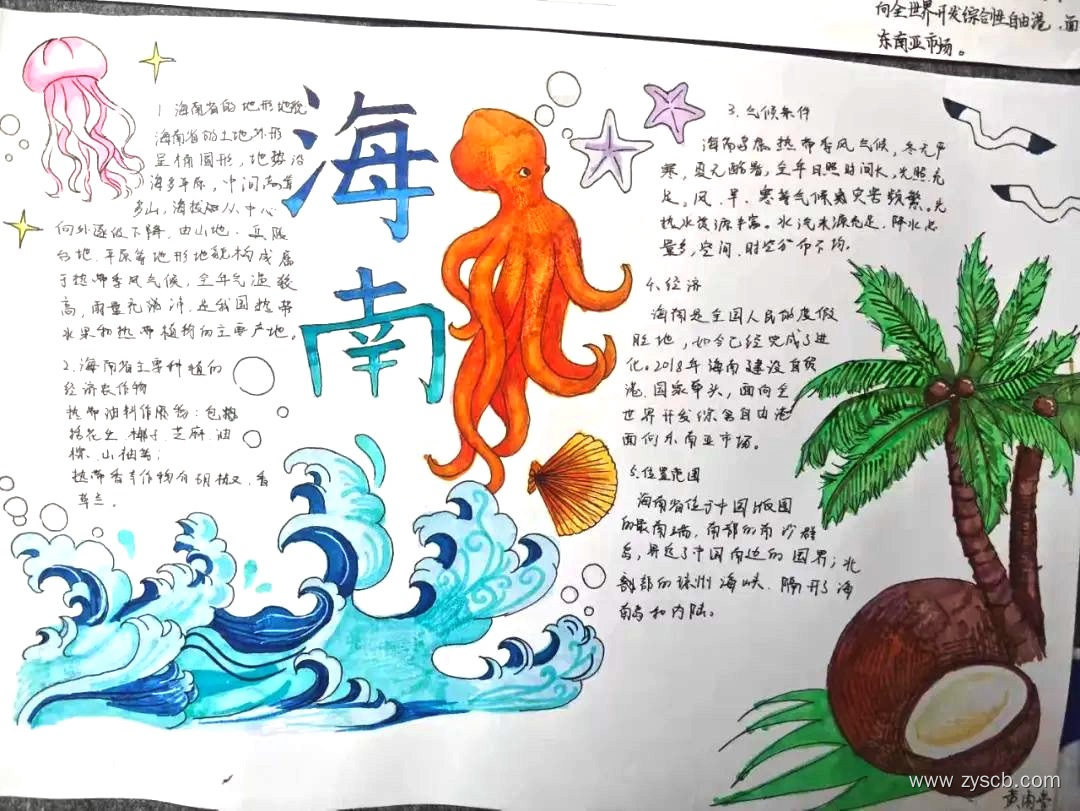 向全世界开发综合性自由港，面
东南亚市场。
海南
1.海南省的地形地貌
海南省的土地外形
呈椭圆形，地势沿
海多平原，中间高耸
多山，海拔从中心
向外逐级下降，由山地、丘陵
台地、平原等地形地貌构成属
于热带季风气候，全年气温较
高，雨量充沛，是我国热带
水果和热带植物的主要产地。
2.海南省主要种植的
经济农作物
热带油料作物：包括
花生、椰子、芝麻、油
棕、山柚等；
热带香料作物有胡椒、香
草兰。
3.气候条件
海南岛属热带季风气候，冬无严
寒，夏无酷暑，全年日照时间长，光照充
足，风、旱、寒等气候灾害频繁。光
热水资源丰富。水汽来源充足，降水总
量多，空间、时空分布不均。
4.经济
海南是全国人民的度假
胜地，如今已经完成了进
化。2018年海南建设自贸
港，国家牵头，面向全
世界开发综合自由港
面向东南亚市场。
5.位置范围
海南省位于中国版图
的最南端，南部的南沙群
岛，界定了中国南边的国界；北
部的琼州海峡，隔开了海
南岛和内陆。
www.zyscb.com